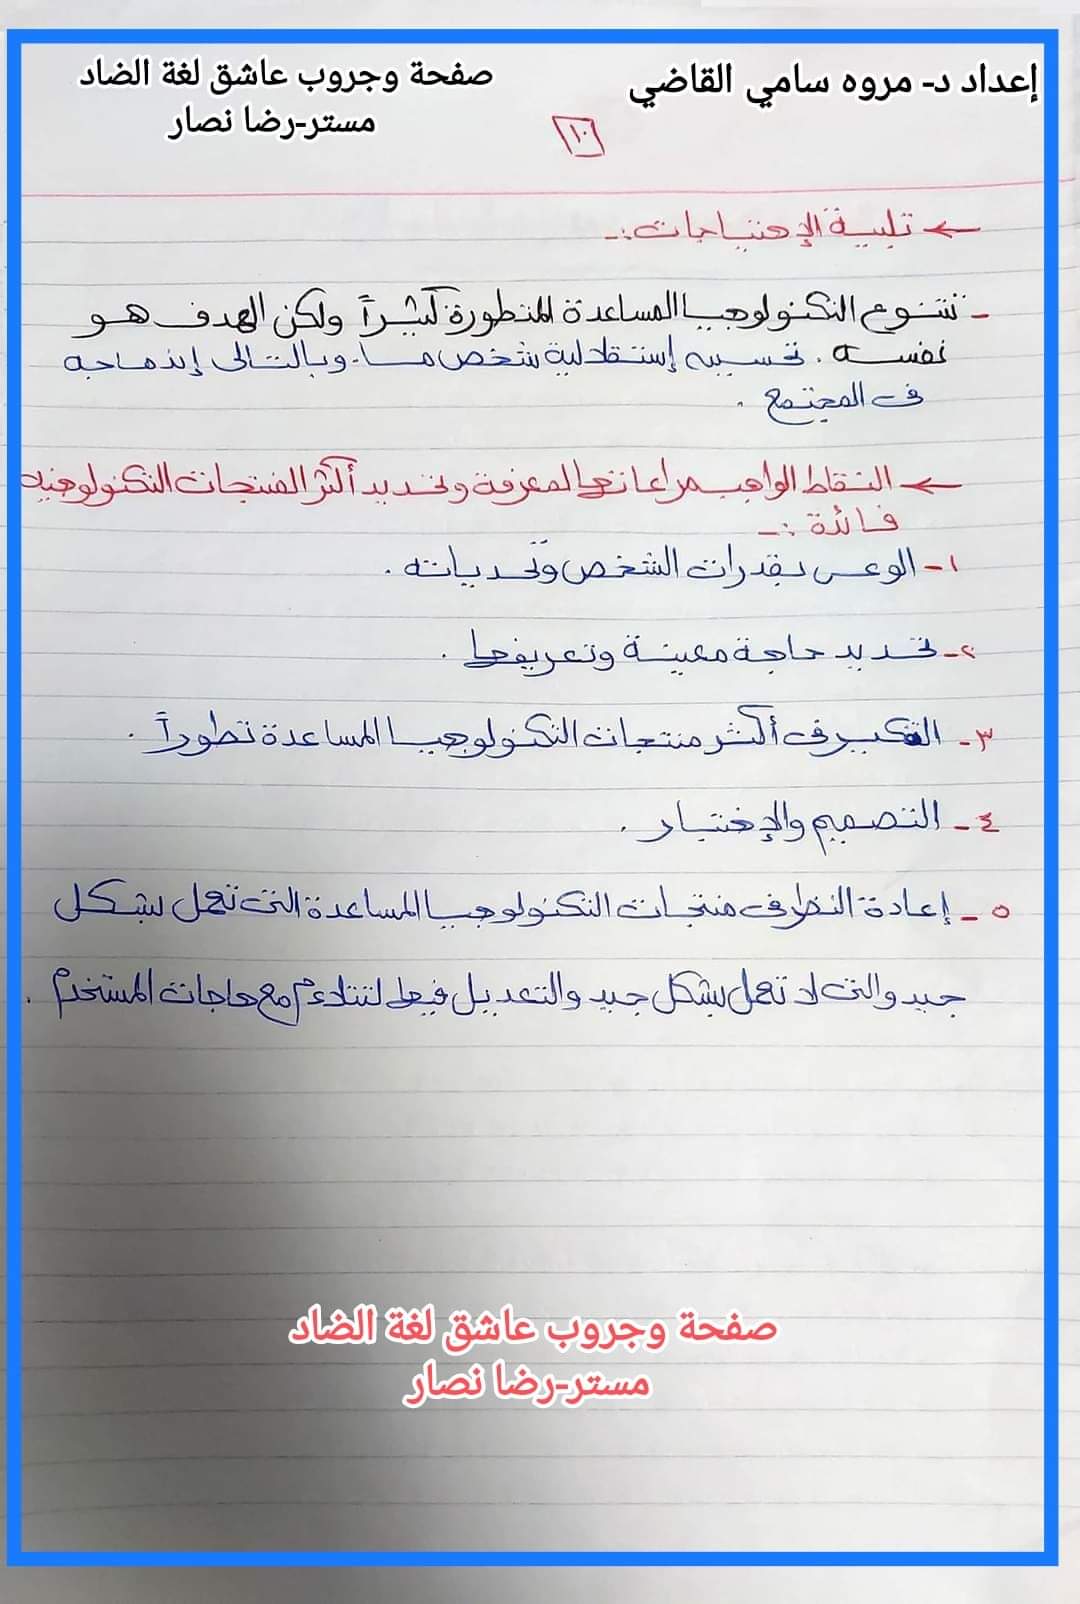 إعداد د- مروه سامي القاضي
صفحة وجروب عاشق لغة الضاد
مستر-رضا نصار
١٠
← تلبية الإحتياجات :-
- تتنوع التكنولوجيا المساعدة المتطورة كثيراً ولكن الهدف هو
نفسه . تحسين إستقلالية شخص ما . وبالتالى إندماجه
فى المجتمع .
← النقاط الواجب مراعاتها لمعرفة وتحديد أكثر المنتجات التكنولوجيه
فائدة :-
١- الوعى بقدرات الشخص وتحدياته .
٢- تحديد حاجة معينة وتعريفها .
٣- التفكير فى أكثر منتجات التكنولوجيا المساعدة تطوراً .
٤- التصميم والإختيار .
٥- إعادة النظر فى منتجات التكنولوجيا المساعدة التى تعمل بشكل
جيد والتى لا تعمل بشكل جيد والتعديل فيها لتتلاءم مع حاجات المستخدم .
صفحة وجروب عاشق لغة الضاد
مستر-رضا نصار